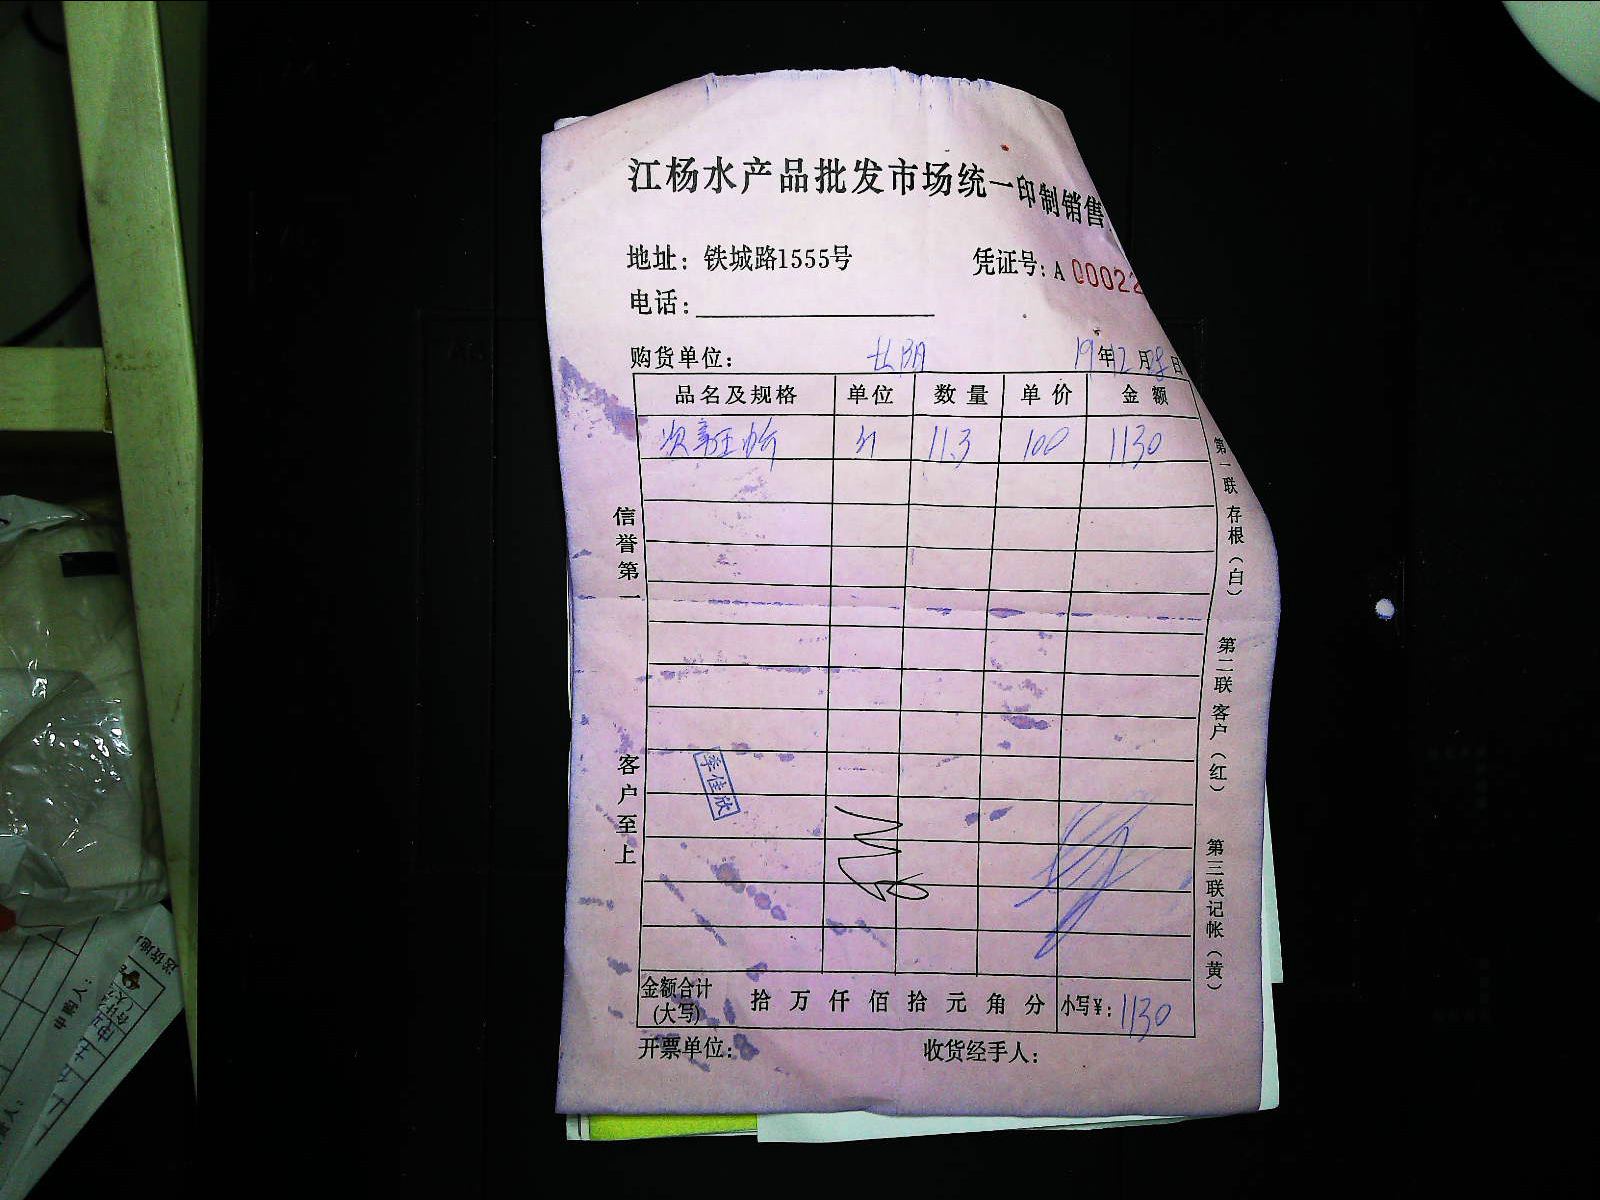 江杨水产品批发市场统一印制销售
地址：铁城路1555号
凭证号：A 00022
电话：
购货单位：
19年12月28日
品名及规格 单位 数量 单价 金额
11.3 100 1130
信誉第一
客户至上
第一联 存根（白）
第二联 客户（红）
第三联 记帐（黄）
季佳欣
金额合计（大写） 拾 万 仟 佰 拾 元 角 分 小写¥：1130
开票单位： 收货经手人：
申购人：
送货地